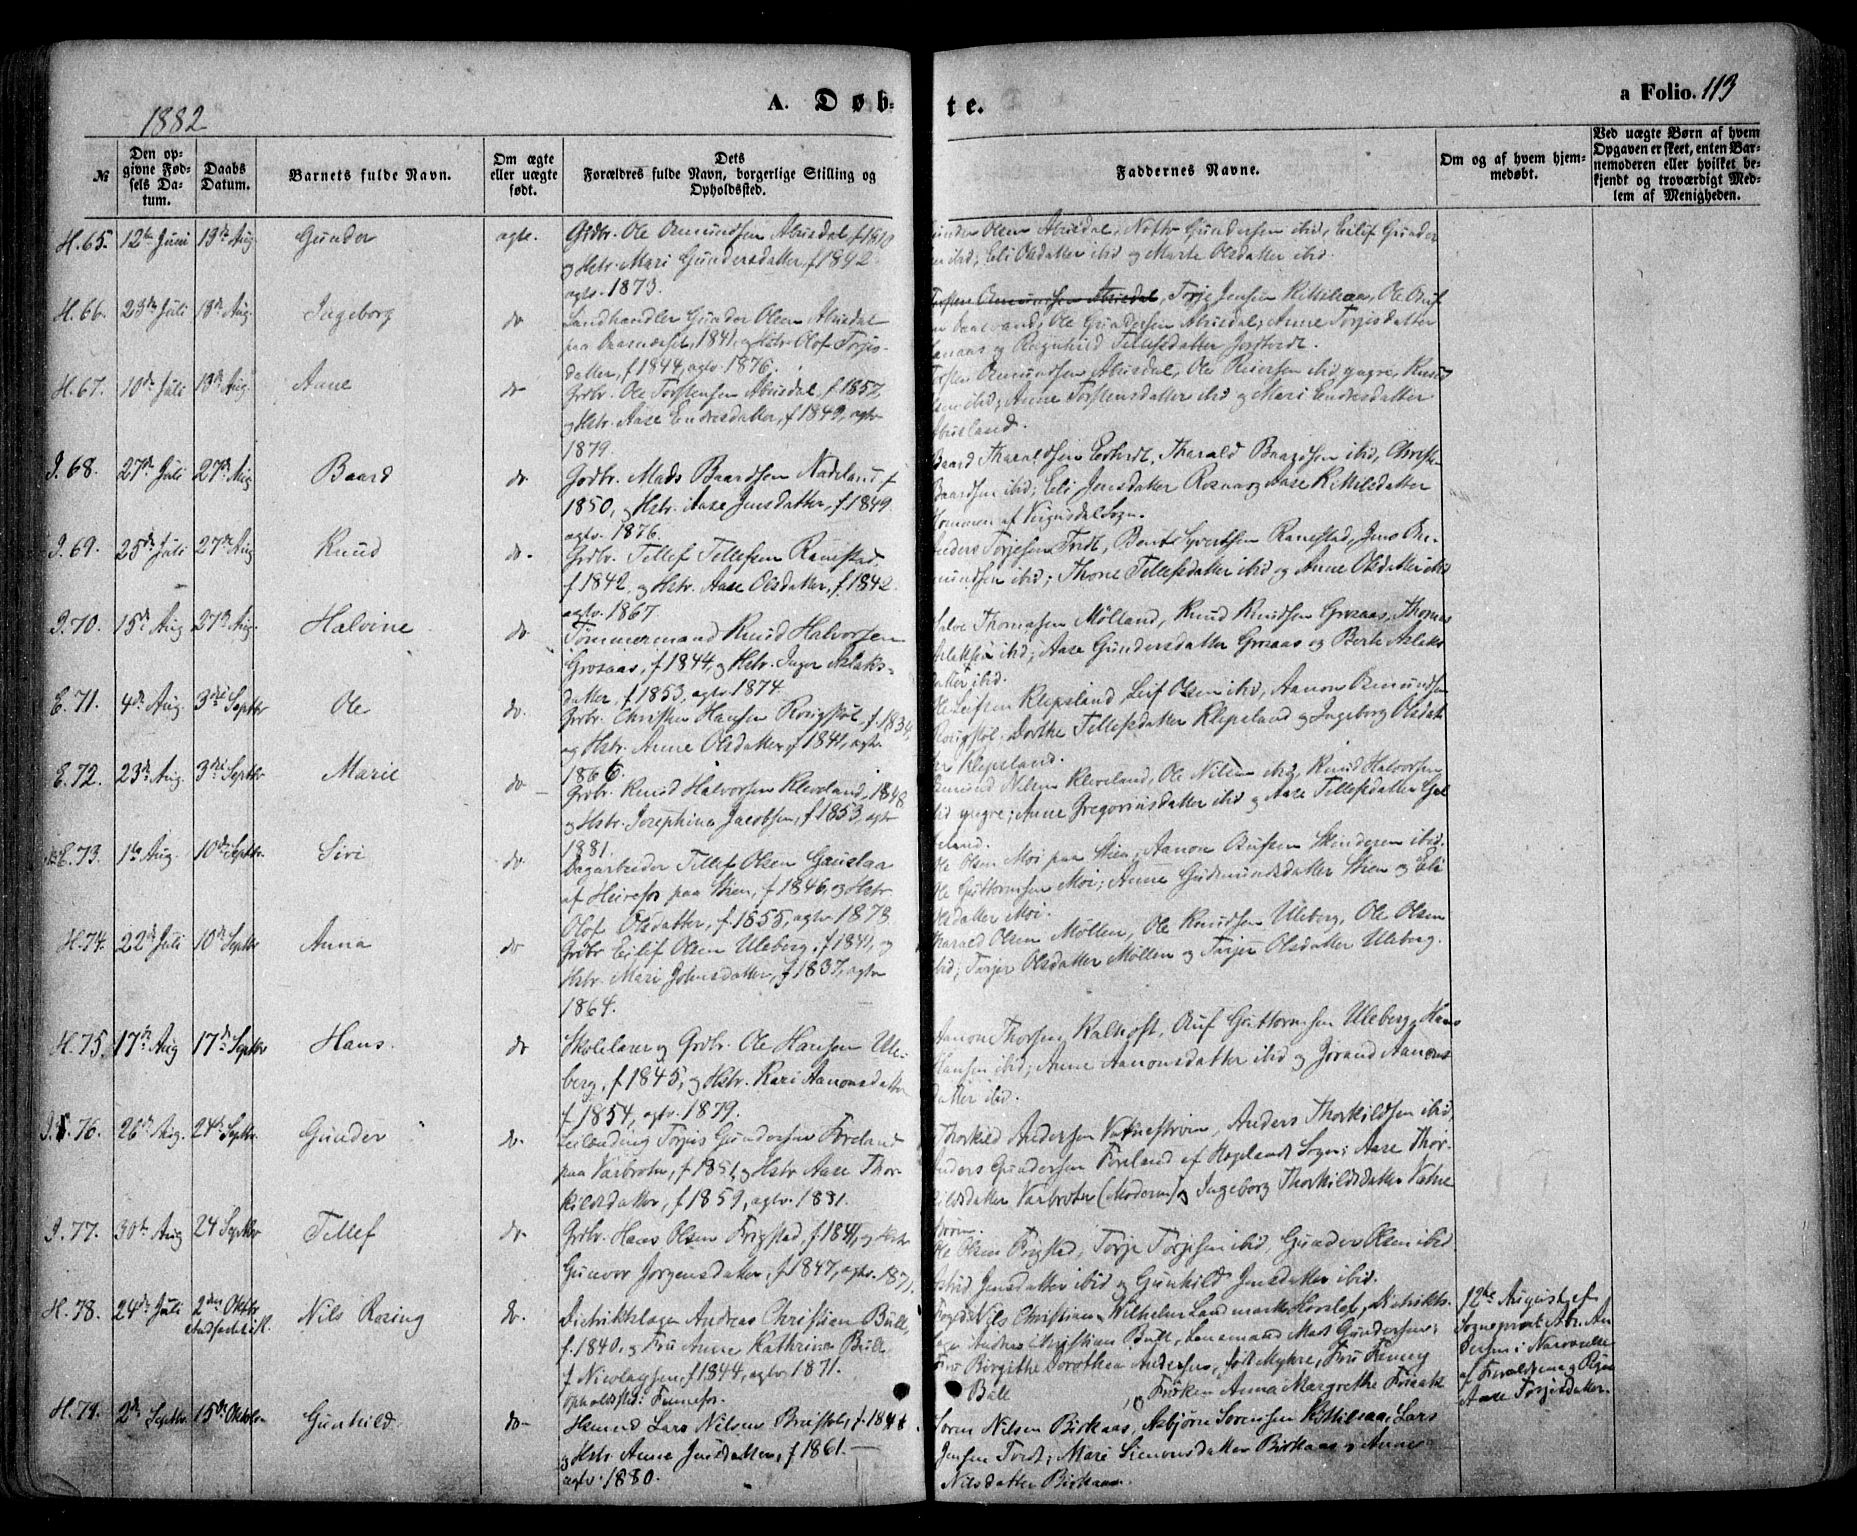 1882
A. Døb-
te.
a Folio. 113
№
Den op-
givne Fød-
sels Da-
tum.
Daabs
Datum.
Barnets fulde Navn.
Om ægte
eller uægte
født.
Dets
Forældres fulde Navn, borgerlige Stilling og
Opholdssted.
Faddernes Navne.
Om og af hvem hjem-
medøbt.
Ved uægte Børn af hvem
Opgaven er skeet, enten Bar-
nemoderen eller hvilket be-
kjendt og troværdigt Med-
lem af Menigheden.
H. 65. 12te Juni 13de Aug Gunder ægte. Grdbr. Ole Osmundsen Abusdal, f. 1840
og Hstr. Mari Gundersdatter, f 1842
ægtv. 1873.
Gunder Olsen Abusdal, Gundersen ibid, Eilif Gunder
ibid; Eli Olsdatter ibid og Marte Olsdatter ibid.
H. 66. 23de Juli 13de Aug. Ingeborg do Landhandler Gunder Olsen Abusdal
paa 1841, og Hstr. Olof Torjis-
datter, f 1844, ægtv. 1876.
Torsten Osmundsen Abusdal, Torje Jensen Kittilsaas, Ole
Ole Gundersen Abusdal; Anne Torjisdatter
og Ragnhild Tellefsdatter
H. 67. 10de Juli 13de Aug. Aane do Grdbr. Ole Torstensen Abusdal, f. 1857,
og Hstr. Aase Endresdatter, f 1849, ægtv
1879.
Torsten Osmundsen Abusdal, Ole Reiersen ibid yngre, Knud
ibid; Anne Torstensdatter ibid og Mari Endresdatter
Abusland.
I. 68. 27de Juli 27de Aug Baard do. Grdbr. Mads Baardsen Nadeland f
1850, og Hstr. Aase Jensdatter, f. 1849
ægtv. 1876.
Baard Tharaldsen Tharald Baardsen ibid,
Baardsen ibid; Eli Jensdatter Rosnaas og Aase Kittilsdatter
af Vegusdal Sogn.
I. 69. 25de Juli 27de Aug Knud do. Grdbr. Tellef Tellefsen Ramstad,
f. 1842 og Hstr. Aase Olsdatter, f. 1842
ægtv. 1867.
Anders Torjesen Bent Syvertsen Ramstad, Jens
mundsen ibid; Thone Tellefsdatter ibid og Anne Olsdatter ibid
I. 70. 15de Aug 27de Aug. Halvine do. Tømmermand Knud Halvorsen
Grosaas, f. 1844, og Hstr. Inger Aslaks-
datter, f 1853, ægtv 1874.
Salve Thomasen Mølland, Knud Knudsen Grosaas, Thomas
Aslaksen ibid; Aase Gundersdatter Grosaas og Berte Aslaks
datter ibid.
E. 71. 4de Aug 3die Septbr Ole do. Grdbr. Christen Hansen f. 1834,
og Hstr. Anne Olsdatter f 1841, ægtv
1866.
Ole Leifsen Klepsland, Leif Olsen ibid, Aanon Osmundsen
Dorthe Tellefsdatter Klepsland og Ingeborg Olsdat
ter Klepsland.
E. 72. 23de Aug. 3die Septbr Marie do Grdbr. Knud Halvorsen Kleveland, 1848
og Hstr. Josephina Jacobsen, f 1853, ægtv
1881.
Osmund Nilsen Kleveland, Ole Nilsen ibid, Knud Halvorsen
ibid yngre; Anne Gregoriusdatter ibid og Aase Tellefsdatter
E. 73. 1te Aug. 10de Septbr. Siri do Dagarbeider Tellef Olsen Gauslaa
af Heirefos paa Skien, f 1846, og Hstr
Olof Olsdatter, f 1855, ægtv 1873
Ole Olsen Moi paa Skien, Aanon ibid.
Ole Guttormsen Moi; Anne Gudmundsdatter Skien og Eli
Olsdatter Moi.
H. 74. 22de Juli 10de Septbr Anna do Grdbr Eilef Olsen Uleberg, f 1841, og
Hstr. Mari Johnsdatter, f 1837, ægtv
1864.
Tharald Olsen Møllen, Ole Knudsen Uleberg, Ole Olsen
ibid; Torjer Olsdatter Møllen og Torjer Olsdatter Uleberg.
H. 75. 17de Aug 17de Septbr Hans do Skolelærer og Grdbr. Ole Hansen Ule-
berg, f. 1845, og Hstr. Kari Aanonsdatter
f 1854, ægtv. 1879.
Aanon Thorsen Kalhoft, Guttormsen Uleberg, Hans
Hansen ibid; Anne Aanonsdatter ibid og Jørand Aanons
datter ibid.
I. 76. 26de Aug. 24de Septbr. Gunder do. Torjis Gundersen Foreland
paa Varbroten, f 1851, og Hstr Aase Thor-
kildsdatter, f 1859, ægtv. 1881.
Thorkild Andersen Vatnestrøm, Anders Thorkildsen ibid
Anders Gundersen Foreland af Heglands Sogn; Aase Thor-
kildsdatter Varbroten (Moderen) og Ingeborg Thorkildsdatter Vatne
strøm.
I. 77. 30te Aug 24 Septbr Tellef do. Grdbr. Hans Olsen Frigstad, f 1841, og Hstr
Gunvor Jørgensdatter, f 1847, ægtv. 187
Ole Olsen Frigstad, Torje Torjisen ibid, Gunder Olsen ibid
Astrid Jensdatter ibid og Gunhild Jensdatter ibid.
H. 78. 24de Juli 2den Oktbr Nils Rosing do. Distriktslæge Andreas Christian Bull,
f. 1840, og Fru Anne Kathrine Bull
f. Nicolaysen, f 1844, ægtv, 1871.
Opholdssted: Fennefos.
Foged Nils Christian Wilhelm Landmark Distrikts-
læge Andreas Christian Bull, Lensmand Mads Gundersen;
Fru Birgithe Dorothea Andersen, født Myhre, Fru Fanny
Bull og Frøken Anna Margrethe
12te August af
Sogneprest Abr. An
dersen i Nærværelse
af Forældrene og
Aase Torjisdatter.
H. 79. 2de Septbr. 15de Oktobr Gunhild do Husmd Lars Nilsen
og Hstr. Anne Jensdatter, f 1861.
ægtv. 1880.
Søren Nilsen Birkaas, Asbjørn Sørensen Kittilsaa, Lars
Jensen Mari Simonsdatter Birkaas og Anne
Nilsdatter Birkaas.